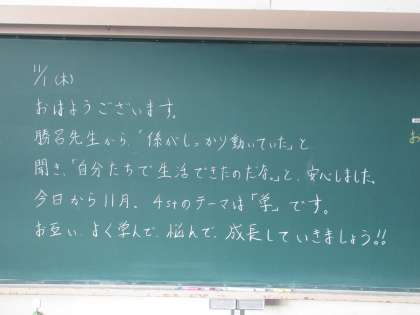 11/1(木)
おはようございます。
勝呂先生から、「係がしっかり動いていた」と
聞き、「自分たちで生活できたのだな。」と、安心しました。
今日から11月、4stのテーマは「学」です。
お互い、よく学んで、悩んで、成長していきましょう!!
お